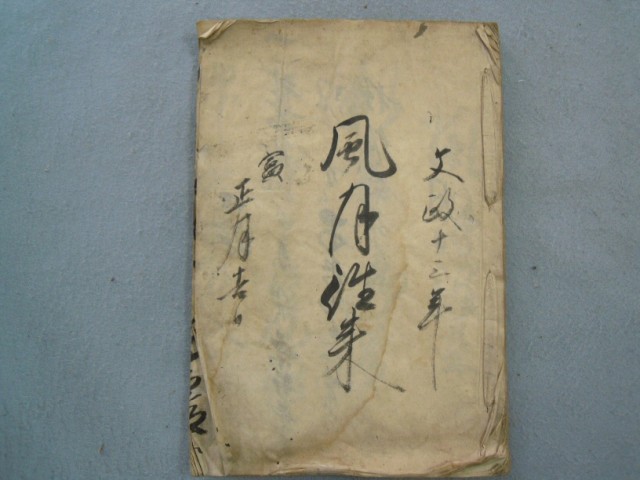 文政十三年
風月往来
寅
正月吉日